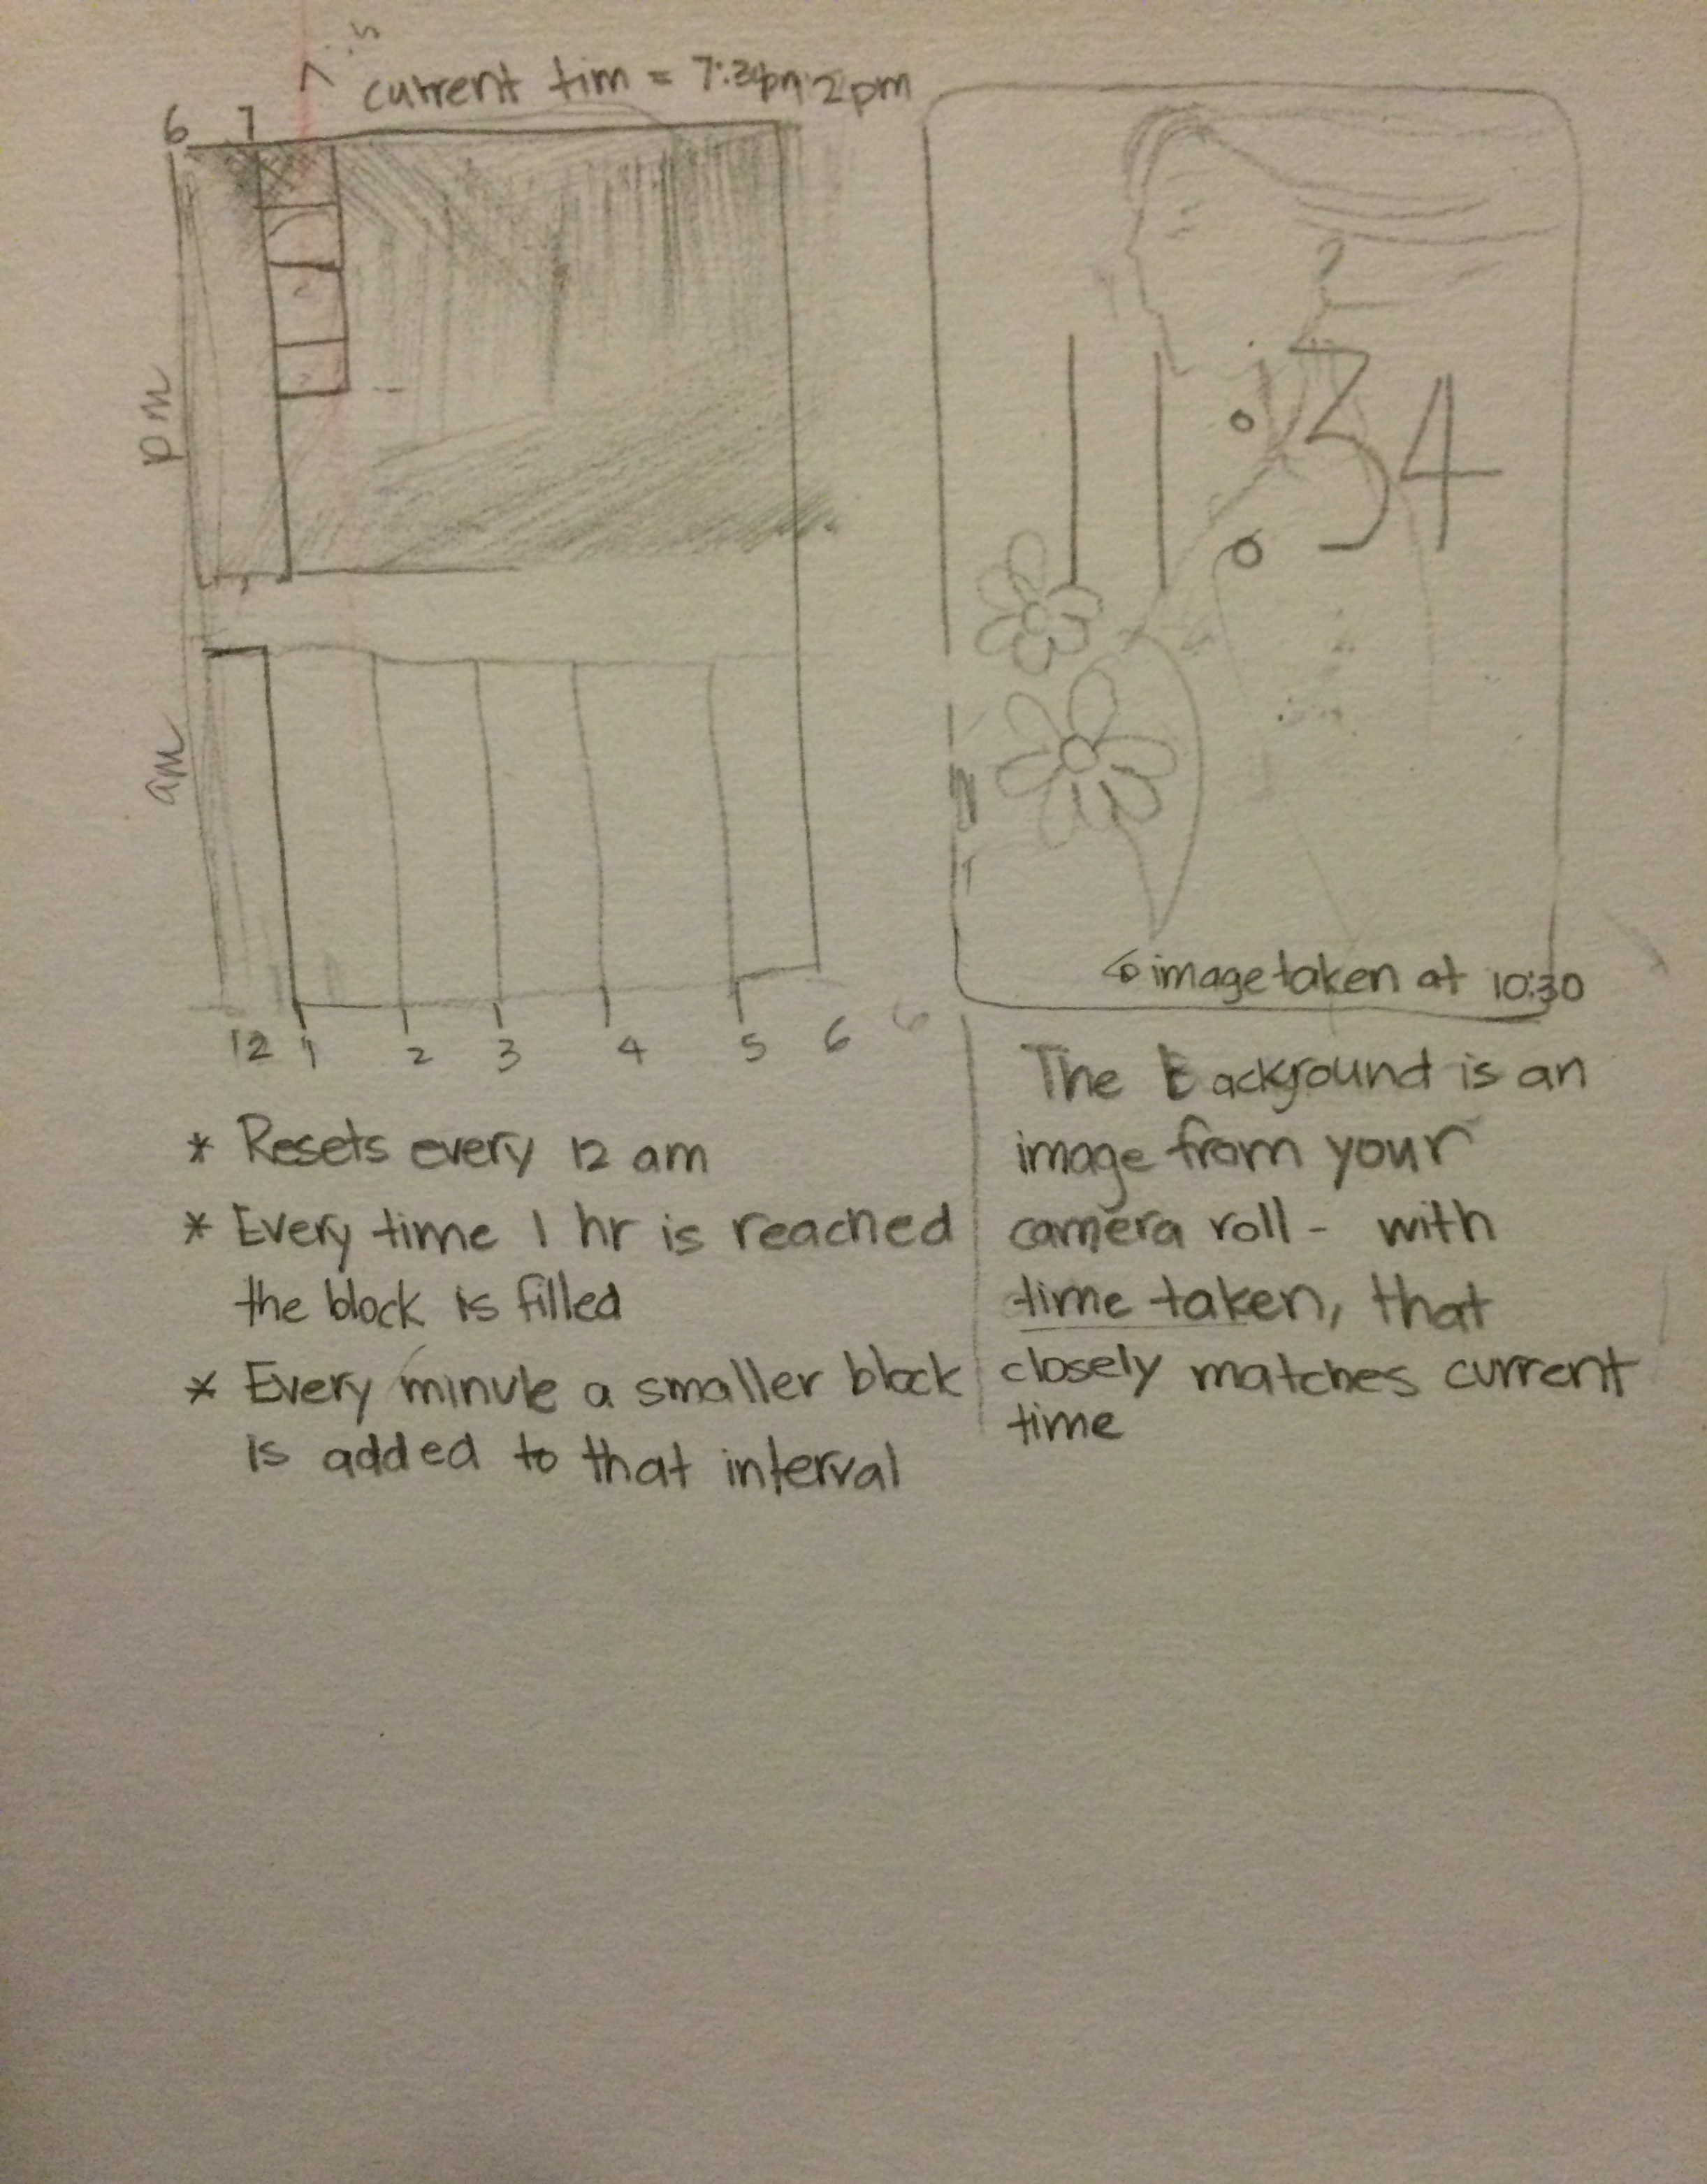 current tim = 7:34pm 2pm
6 7
pm
am
12 1 2 3 4 5 6 6
* Resets every 12 am
* Every time 1 hr is reached
the block is filled
* Every minute a smaller block
is added to that interval
11:34
image taken at 10:30
The background is an
image from your
camera roll - with
time taken, that
closely matches current
time